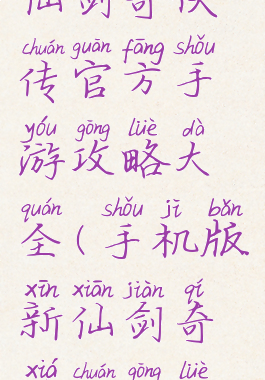 仙剑奇侠
chuán guān fāng shǒu
传官方手
yóu gōng lüè dà
游攻略大
quán shǒu jī bǎn
全(手机版
xīn xiān jiàn qí
新仙剑奇
xiá chuán gōng lüè